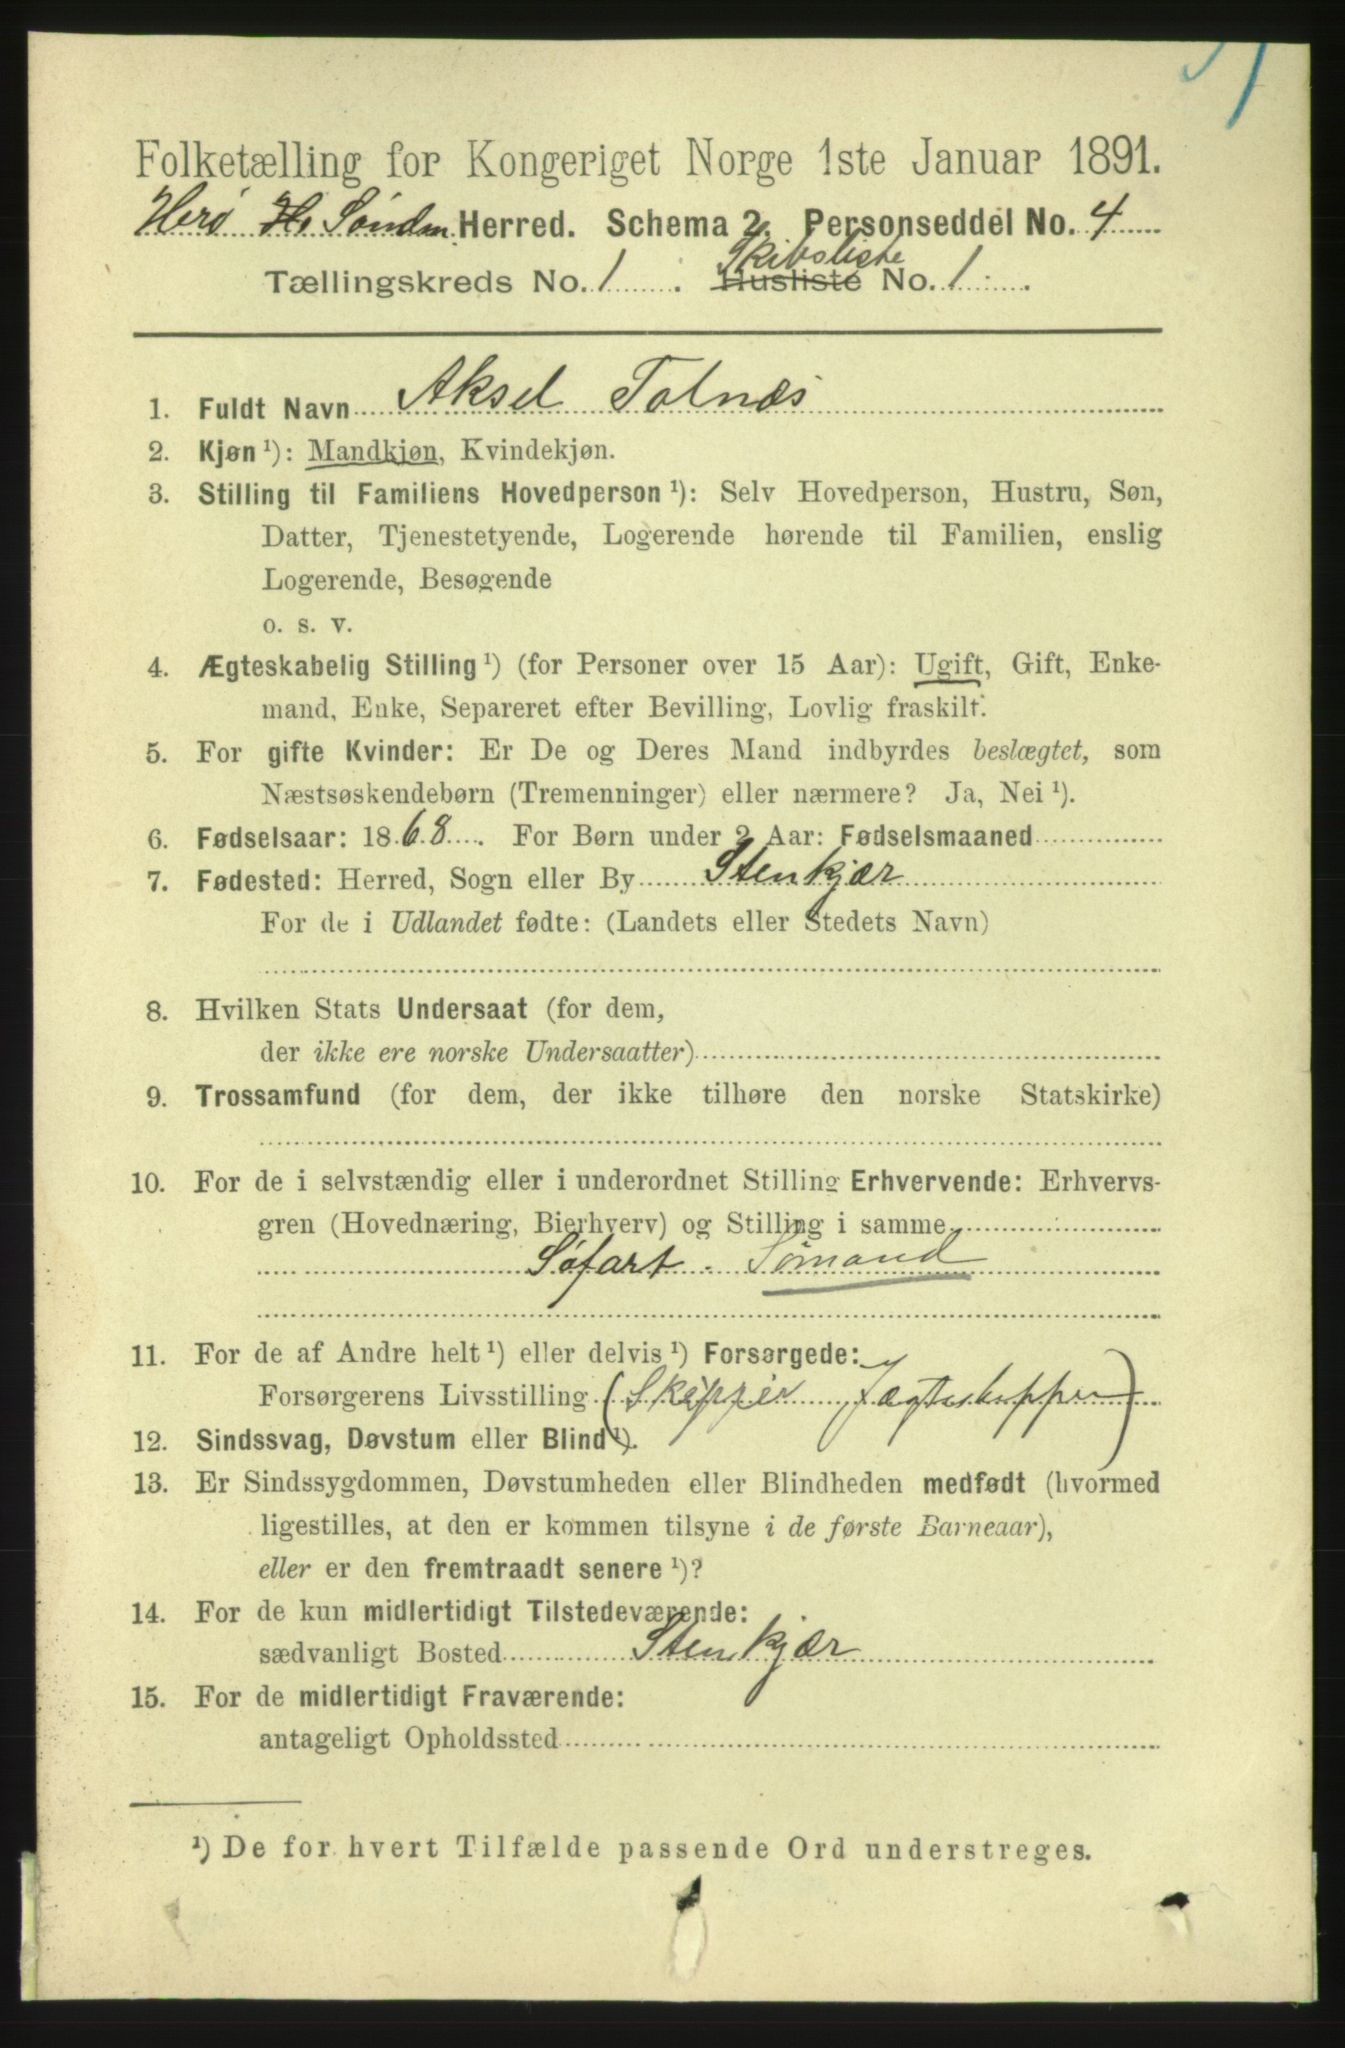 Folketælling for Kongeriget Norge 1ste Januar 1891.
Herø Søndm. Herred. Schema 2. Personseddel No. 4
Skibsliste
Tællingskreds No. 1. Husliste No. 1.
1. Fuldt Navn Aksel Tolnæs
2. Kjøn ¹): Mandkjøn, Kvindekjøn.
3. Stilling til Familiens Hovedperson ¹): Selv Hovedperson, Hustru, Søn,
Datter, Tjenestetyende, Logerende hørende til Familien, enslig
Logerende, Besøgende
o. s. v.
4. Ægteskabelig Stilling ¹) (for Personer over 15 Aar): Ugift, Gift, Enke-
mand, Enke, Separeret efter Bevilling, Lovlig fraskilt.
5. For gifte Kvinder: Er De og Deres Mand indbyrdes beslægtet, som
Næstsøskendebørn (Tremenninger) eller nærmere? Ja, Nei ¹).
6. Fødselsaar: 1868. For Børn under 2 Aar: Fødselsmaaned
7. Fødested: Herred, Sogn eller By Stenkjær
For de i Udlandet fødte: (Landets eller Stedets Navn)
8. Hvilken Stats Undersaat (for dem,
der ikke ere norske Undersaatter)
9. Trossamfund (for dem, der ikke tilhøre den norske Statskirke)
10. For de i selvstændig eller i underordnet Stilling Erhvervende: Erhvervs-
gren (Hovednæring, Bierhverv) og Stilling i samme
Søfart. Sømand
11. For de af Andre helt ¹) eller delvis ¹) Forsørgede:
Forsørgerens Livsstilling (Skipper Jægteskipper)
12. Sindssvag, Døvstum eller Blind ¹).
13. Er Sindssygdommen, Døvstumheden eller Blindheden medfødt (hvormed
ligestilles, at den er kommen tilsyne i de første Barneaar),
eller er den fremtraadt senere ¹)?
14. For de kun midlertidigt Tilstedeværende:
sædvanligt Bosted Stenkjær
15. For de midlertidigt Fraværende:
antageligt Opholdssted
¹) De for hvert Tilfælde passende Ord understreges.